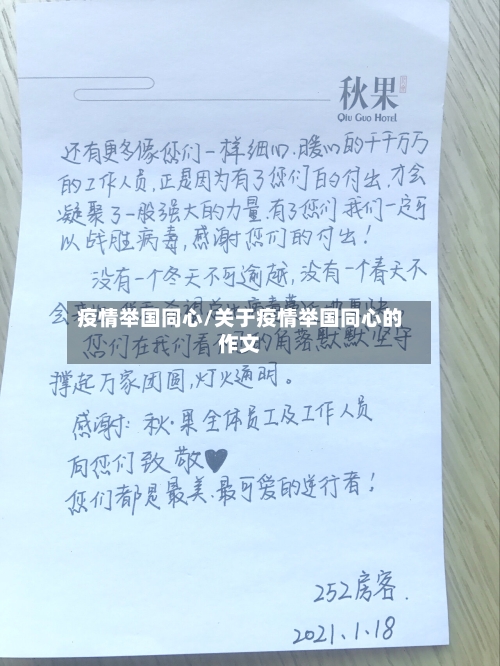 秋果
Qiu Guo Hotel
还有更多像您们一样细心、暖心的千千万万
的工作人员,正是因为有了您们的付出,才会
凝聚了一股强大的力量,有了您们我们一定可
以战胜病毒,感谢您们的付出!
没有一个冬天不可逾越,没有一个春天不
会
疫情举国同心/关于疫情举国同心的
作文
您们在我们看 的角落默默坚守
撑起万家团圆,灯火通明。
感谢:秋果全体员工及工作人员
向您们致敬♥
您们都是最美、最可爱的逆行者!
252房客.
2021.1.18